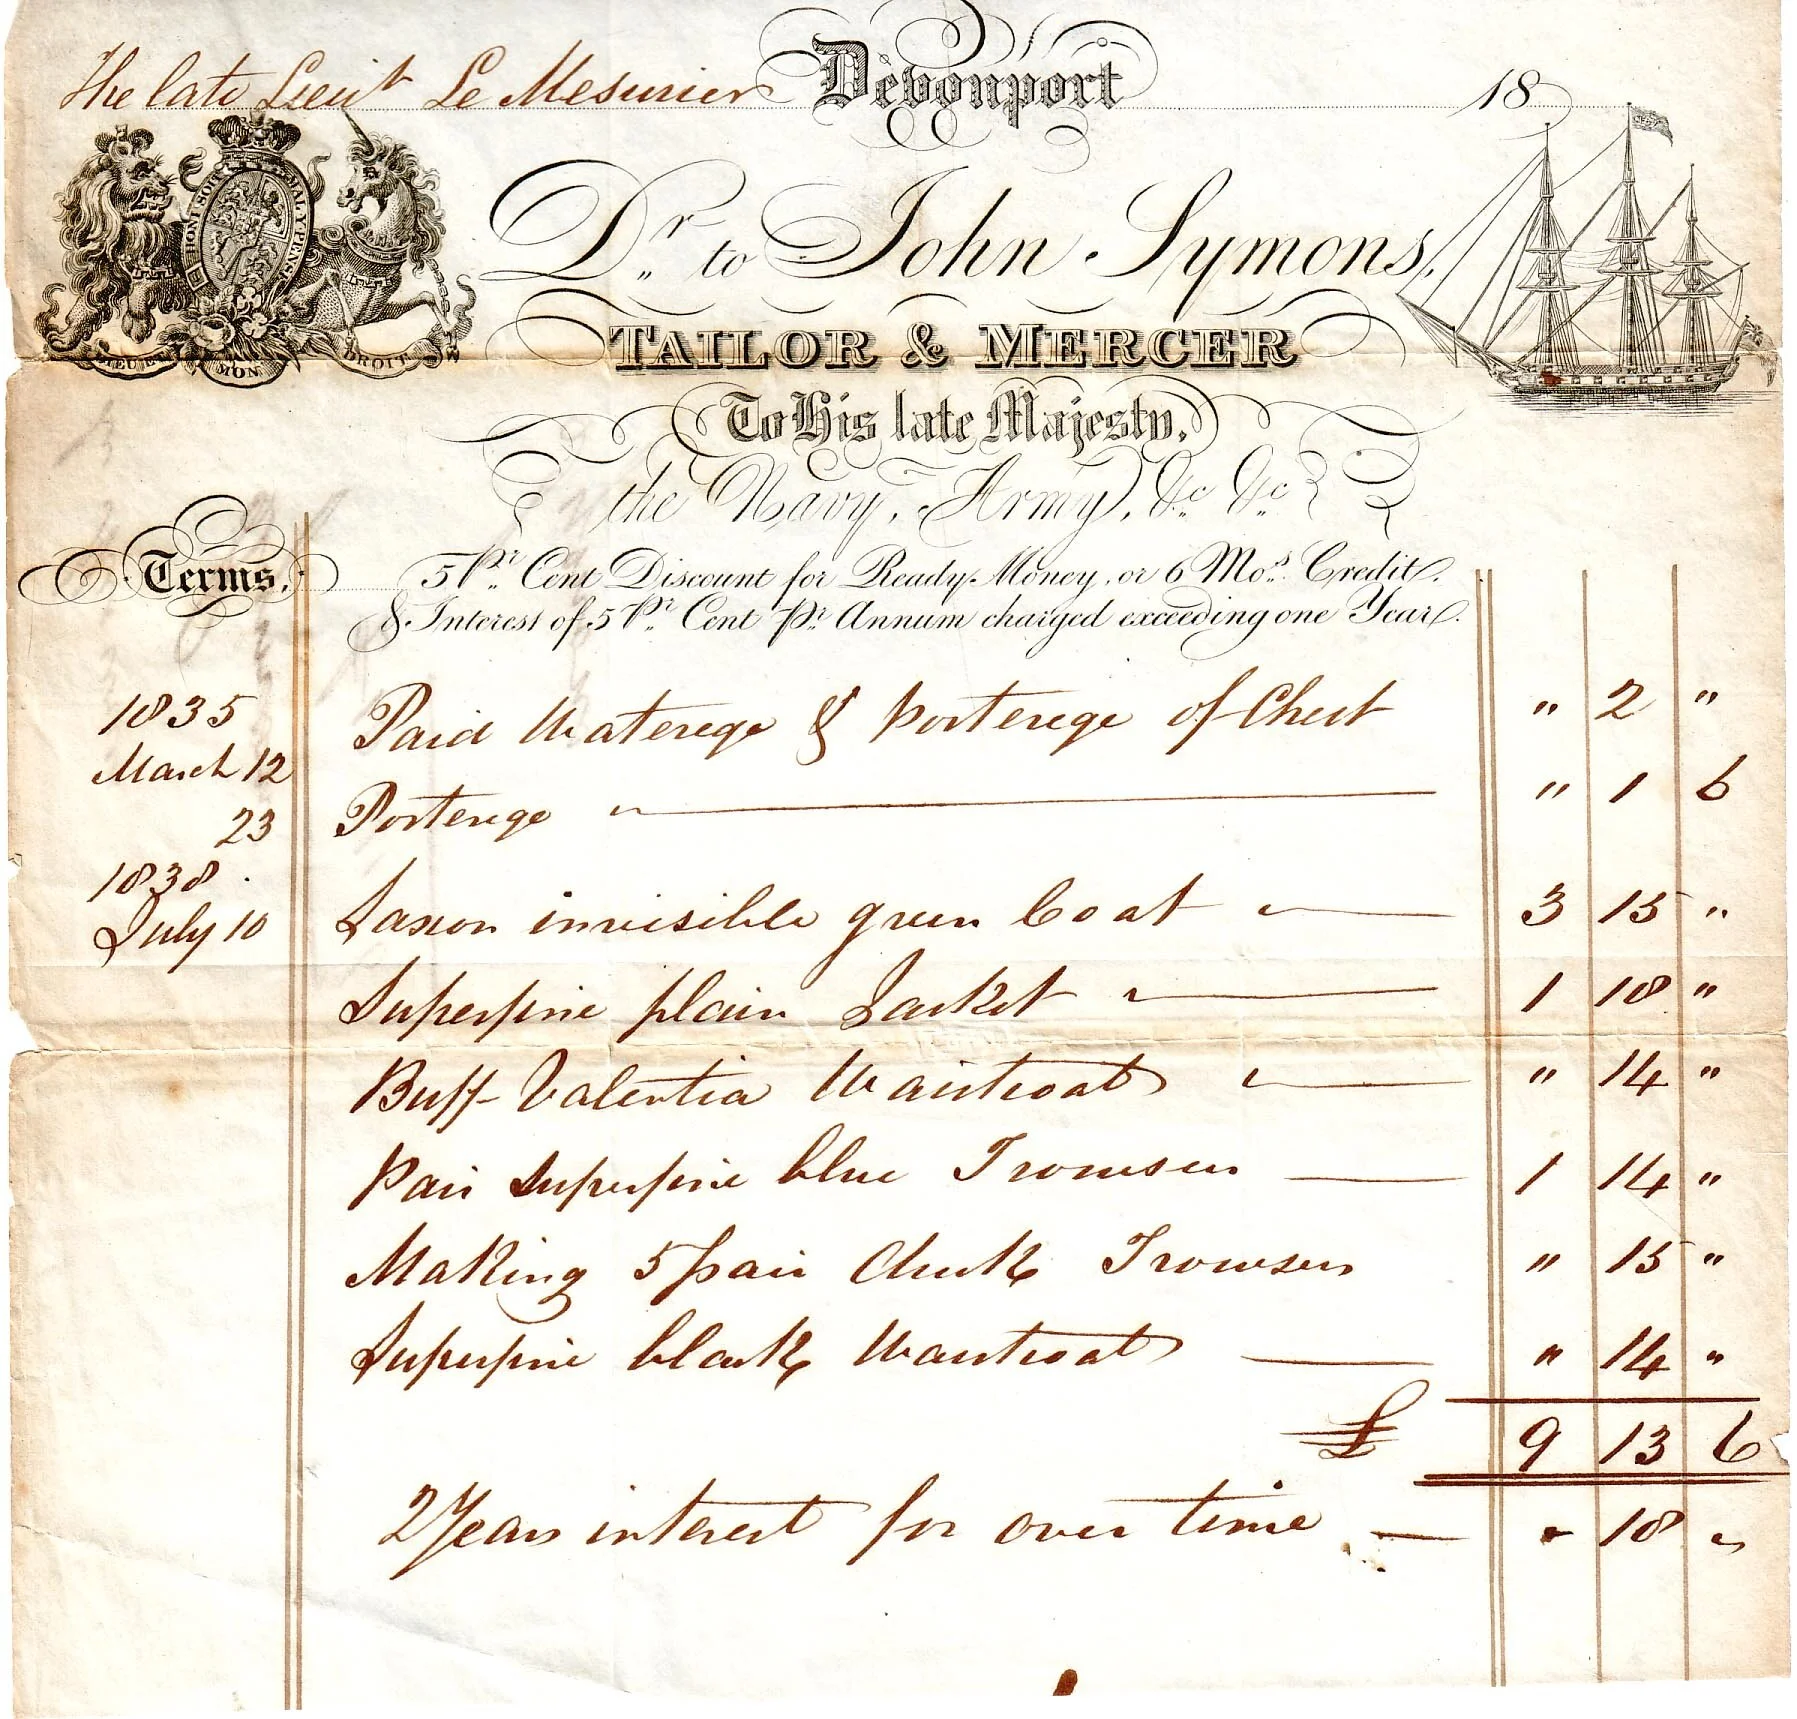 The late Lieut Le Mesurier Devonport 18
HONI SOIT MAL Y PENSE
DIEU ET MON DROIT
Dr. to John Symons,
TAILOR & MERCER
To His late Majesty,
the Navy, Army, &c. &c.
Terms. 5 Pr. Cent Discount for Ready Money, or 6 Mos. Credit,
& Interest of 5 Pr. Cent Pr. Annum charged exceeding one Year.
1835
Paid Waterege & porterege of Chest " 2 "
March 12
23 Porterege " 1 6
1838.
July 10 Saxon invisible green Coat 3 15 "
Superfine plain Jacket 1 18 "
Buff Valentia Waistcoat " 14 "
Pair Superfine blue Trowsers 1 14 "
Making 5 pair Check Trowsers " 15 "
Superfine black Waistcoat " 14 "
£ 9 13 6
2 Years interest for over time " 18 "